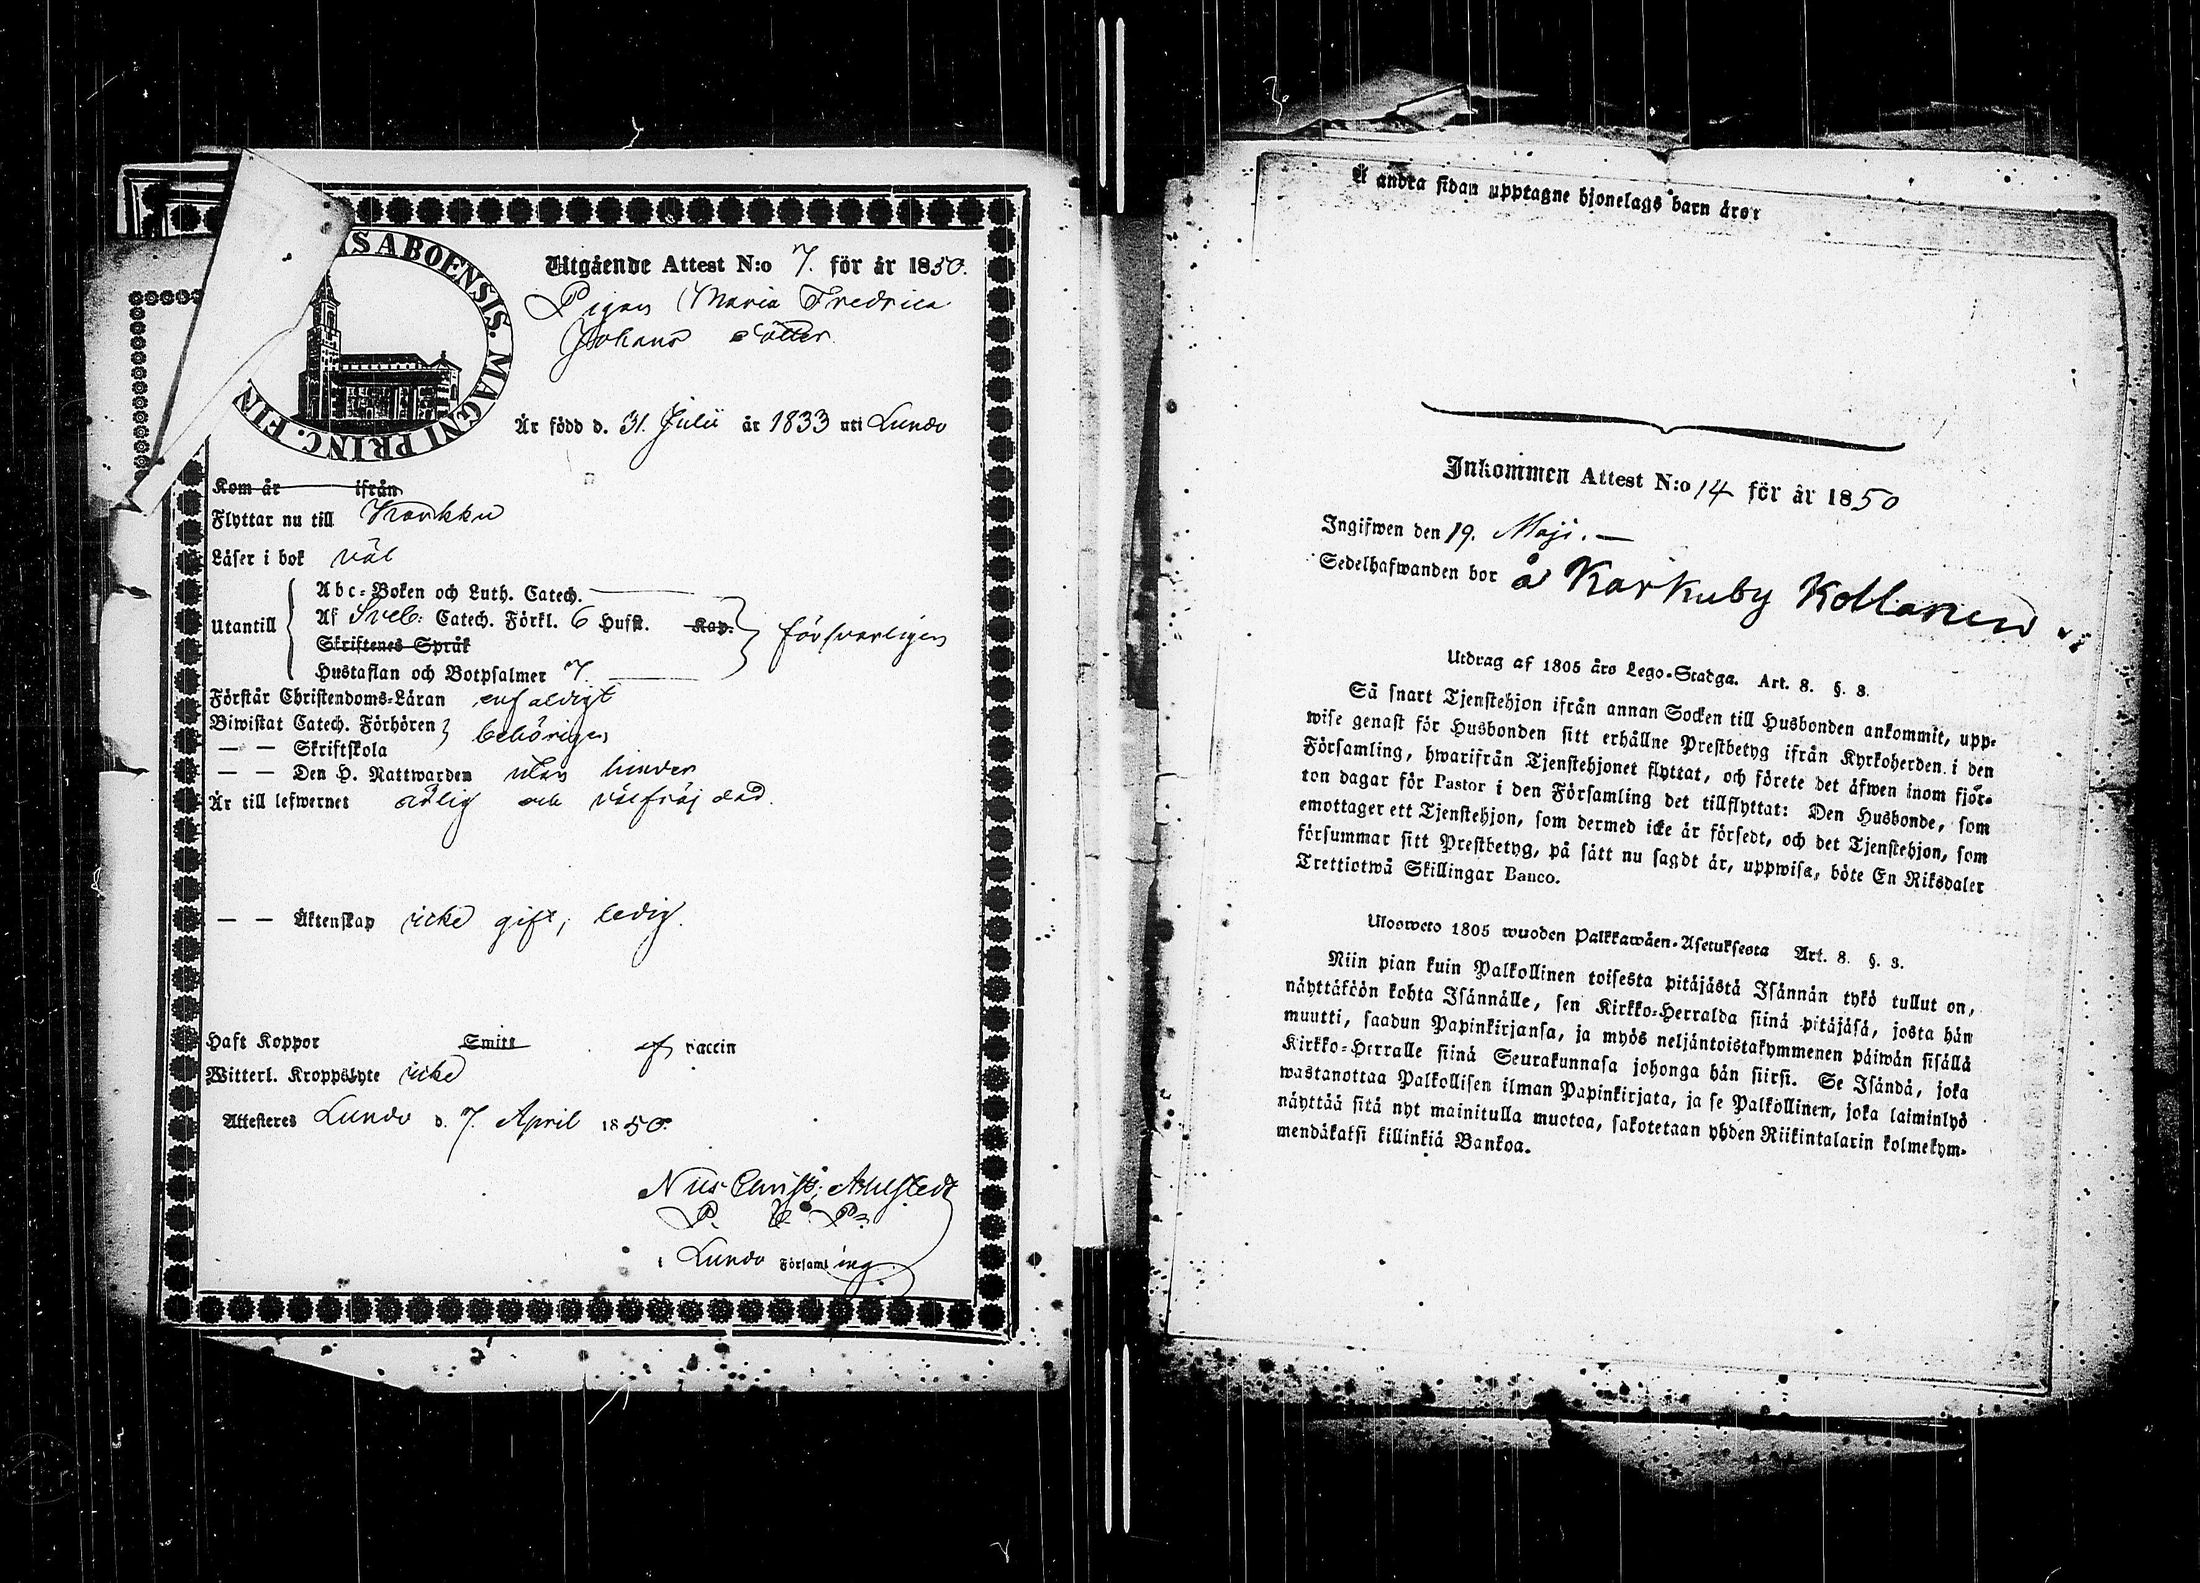 IS ABOENSIS. MAGNI PRINC. FIN
Utgående Attest N:o 7. för år 1850.
Pigan Maria Fredrica
Johans dotter.
Är född d. 31. Julii år 1833 uti Lundo
Kom år ifrån
Flyttar nu till Karkku
Läser i bok väl
Abc-Boken och Luth. Catech.
Utantill Af Sveb: Catech. Förkl. 6 Hufst. Kap. försvarligen
Skriftenes Språk
Hustaflan och Botpsalmer 7.
Förstår Christendoms-Läran enfaldigt
Biwistat Catech. Förhören behörigen
— — Skriftskola
— — Den H. Nattwarden utan hinder
Är till lefwernet ärlig och välfräjdad.
— — Äktenskap icke gift, ledig.
Haft Koppor Smitt af vaccin
Witterl. Kroppslyte icke
Attesteres Lundo d. 7. April 1850.
Nils Christ: Ahlstedt
P. V. P.
i Lundo Församling
Å andra sidan upptagne hjonelags barn äro:
Inkommen Attest N:o 14 för år 1850
Ingifwen den 19. Maji. —
Sedelhafwanden bor å Karkuby Kollanen
Utdrag af 1805 års Lego-Stadga. Art. 8. §. 3.
Så snart Tjenstehjon ifrån annan Socken till Husbonden ankommit, upp-
wise genast för Husbonden sitt erhållne Prestbetyg ifrån Kyrkoherden i den
Församling, hwarifrån Tjenstehjonet flyttat, och förete det äfwen inom fjor-
ton dagar för Pastor i den Församling det tillflyttat: Den Husbonde, som
emottager ett Tjenstehjon, som dermed icke är försedt, och det Tjenstehjon, som
försummar sitt Prestbetyg, på sätt nu sagdt är, uppwisa, böte En Riksdaler
Trettiotwå Skillingar Banco.
Ulosweto 1805 wuoden Palkkawäen-Asetuksesta Art. 8. §. 3.
Niin pian kuin Palkollinen toisesta pitäjästä Isännän tykö tullut on,
näyttäköön kohta Isännälle, sen Kirkko-Herralda siinä pitäjäsä, josta hän
muutti, saadun Papinkirjansa, ja myös neljäntoistakymmenen päiwän sisällä
Kirkko-Herralle siinä Seurakunnasa johonga hän siirsi. Se Isändä, joka
wastanottaa Palkollisen ilman Papinkirjata, ja se Palkollinen, joka laiminlyö
näyttää sitä nyt mainitulla muotoa, sakotetaan yhden Riikintalarin kolmekym-
mendäkaksi killinkiä Bankoa.